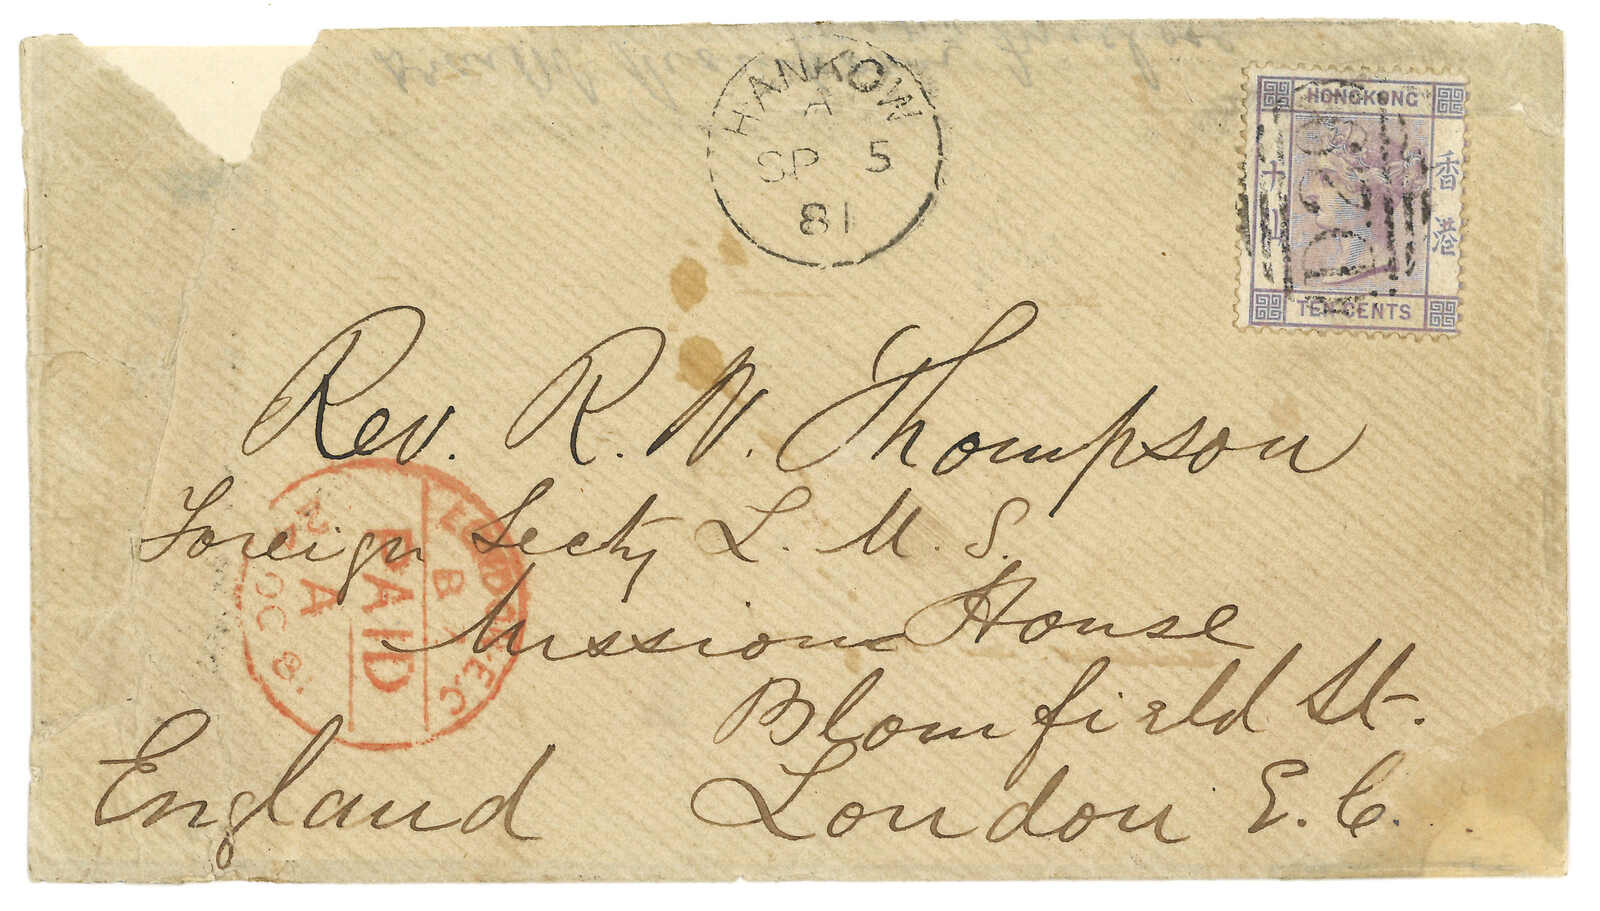 HANKOW
A
SP 5
81
HONGKONG
香港
TEN CENTS
D29
Rev. R. W. Thompson
Foreign Secty L. M. S.
Mission House
Blomfield St.
London E. C.
England
LONDON E.C
B
PAID
A
OC 81